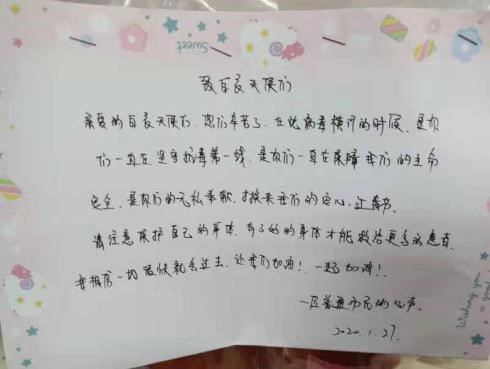 Sweet
致白衣天使们
亲爱的白衣天使们、您们辛苦了、在这病毒横行的时候、是你
们一直在坚守抗毒第一线、是你们一直在保障我们的生命
安全、是你们的无私奉献、才换来我们的安心过春节。
请注意保护自己的身体、有了好的身体才能救治更多的患者、
我相信一切很快就会过去、让我们加油！一起加油！
一位普通市民的心声、
2020.1.27.
Wishing you
a good